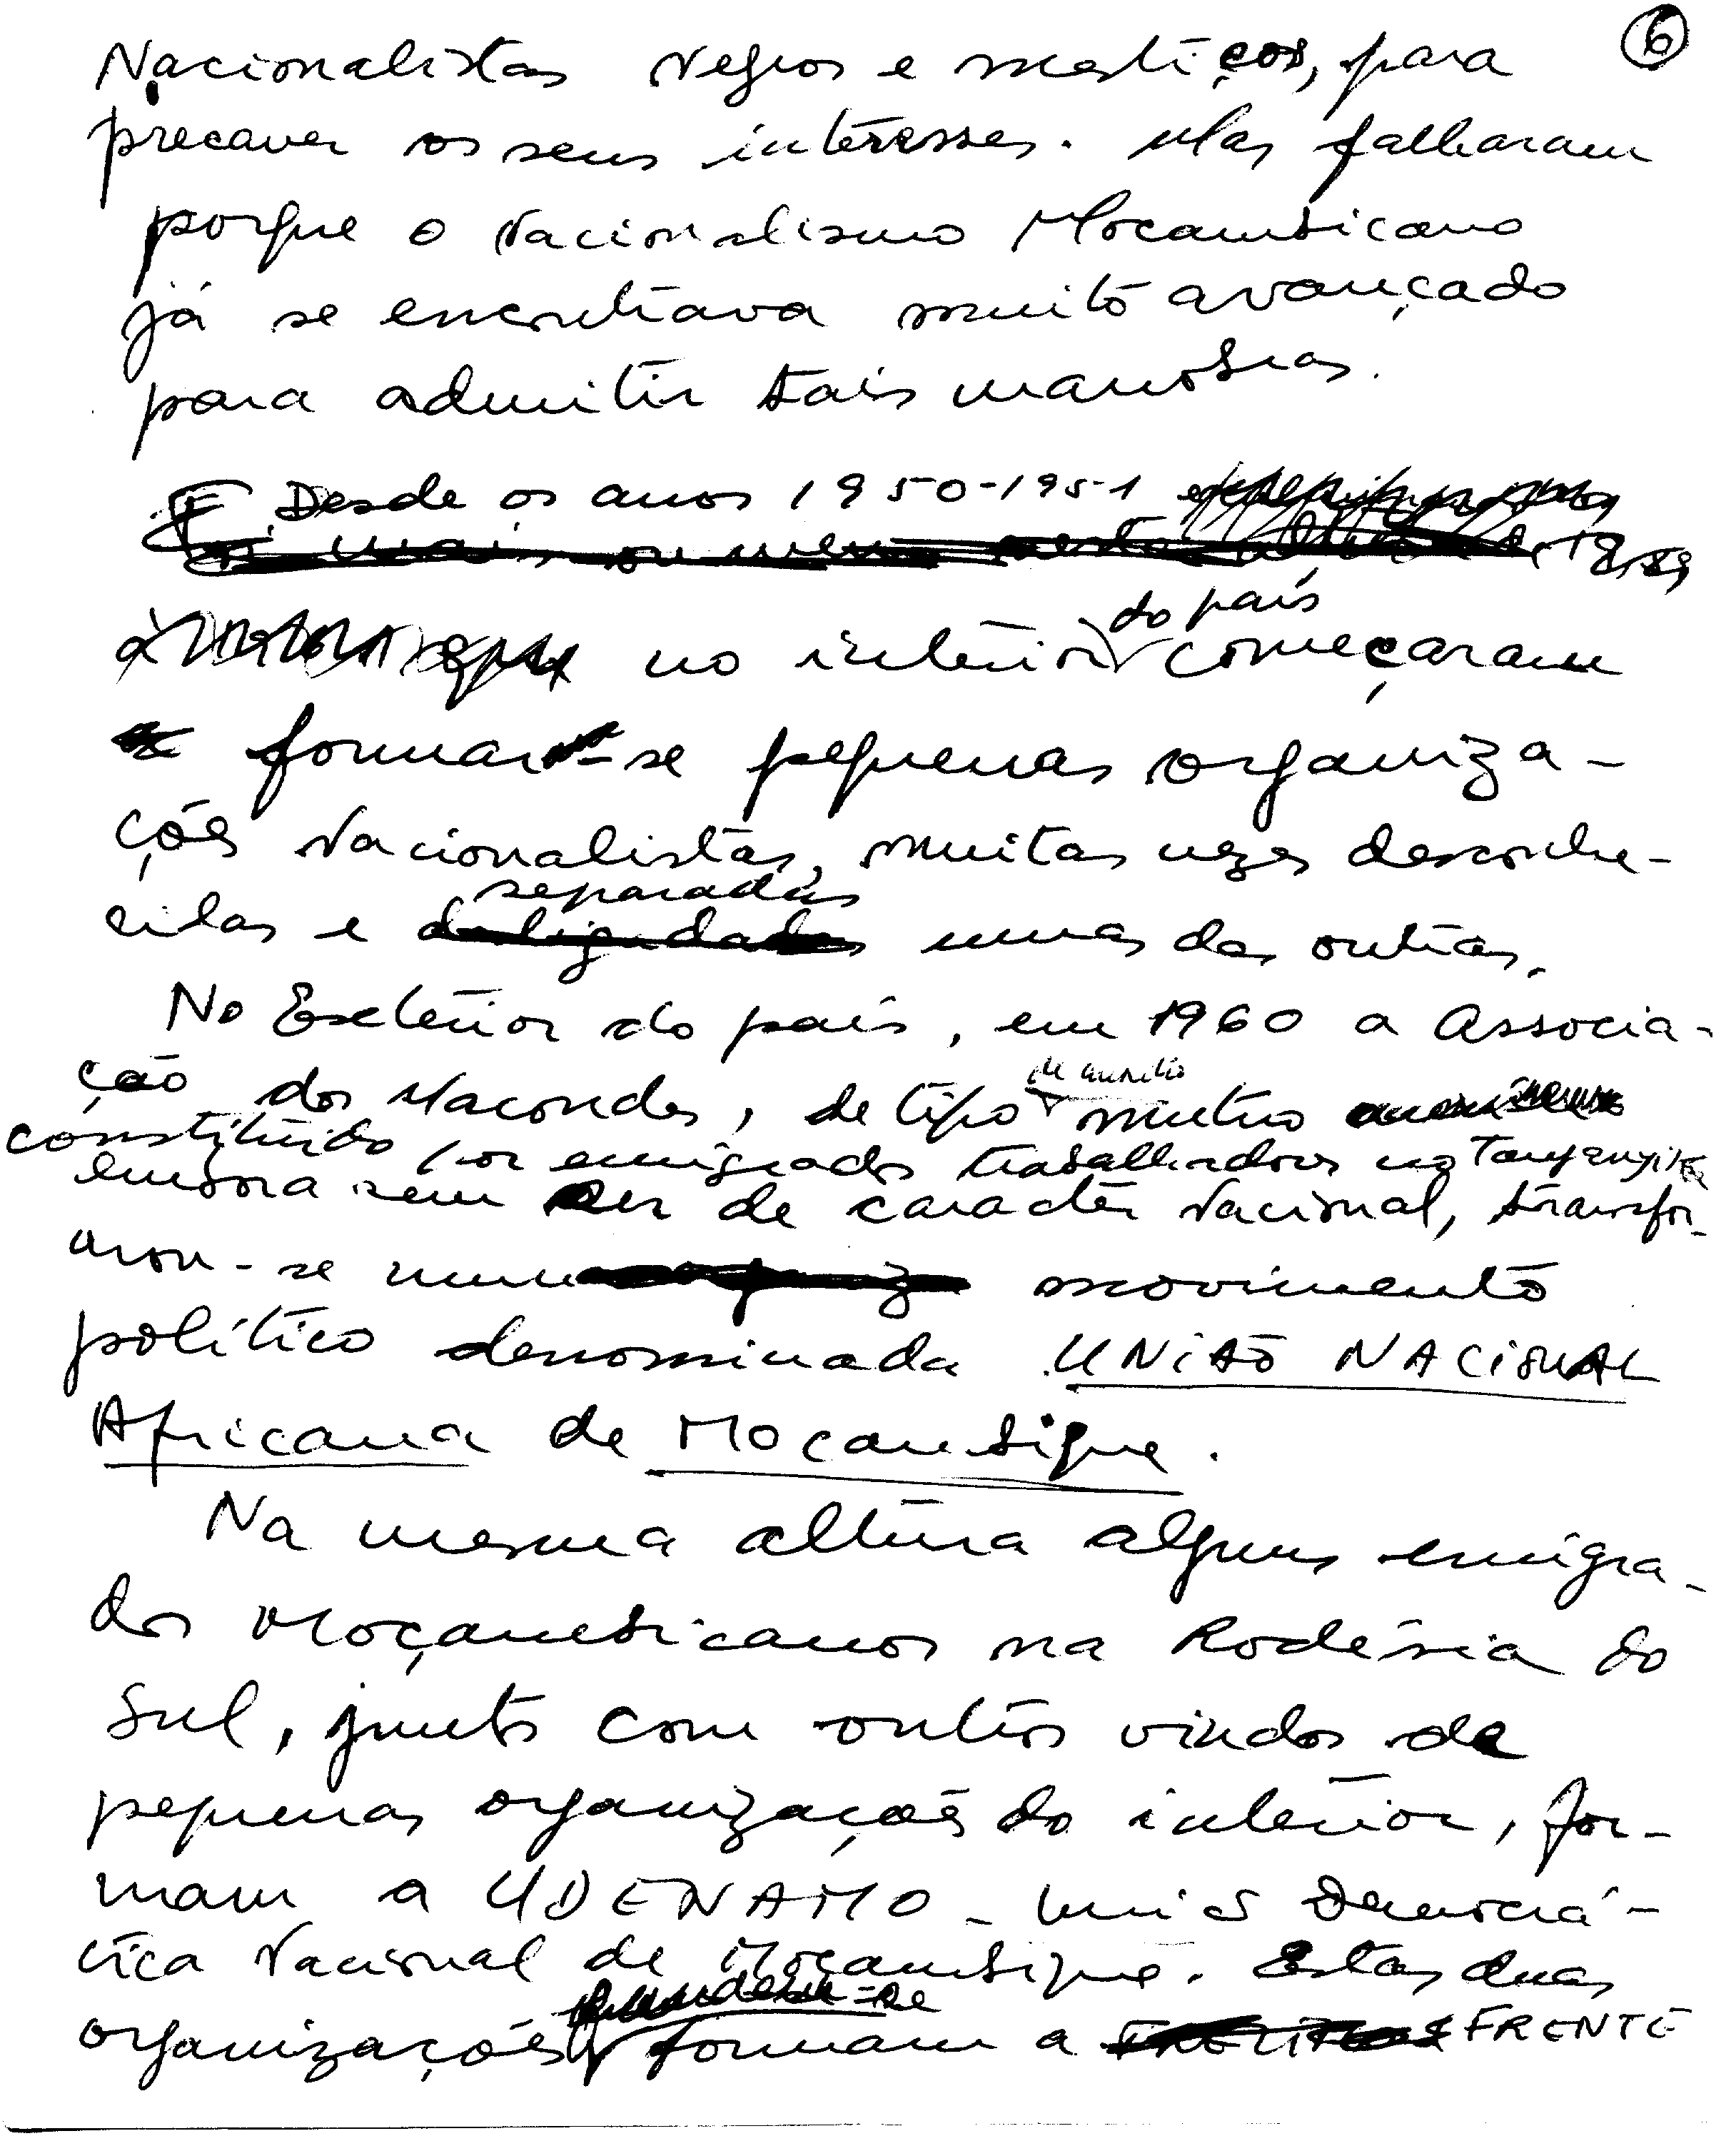 6
Nacionalistas Negros e mestiços, para
precaver os seus interesses. Mas falharam
porque o Nacionalismo Moçambicano
já se encontrava muito avançado
para admitir tais manobras.
Desde os anos 1950-1951
mais ou menos
do país
no interior começaram
formar-se pequenas organiza-
ções Nacionalistas, muitas vezes desconhe-
separadas
cidas e desligadas umas das outras.
No Exterior do país, em 1960 a Associa-
ção dos Macondes, de tipo mutuo
de auxilio
constituido por emigrados trabalhadores no Tanganyika
embora sem ser de caracter Nacional, transfor-
mou-se num movimento
político denominada UNIÃO NACIONAL
Africana de Moçambique.
Na mesma altura alguns emigra-
dos Moçambicanos na Rodésia do
Sul, junto com outros vindos de
pequenas organizações do interior, for-
mam a UDENAMO - União Democrá-
tica Nacional de Moçambique. Estas duas
organizações formam a FRENTE